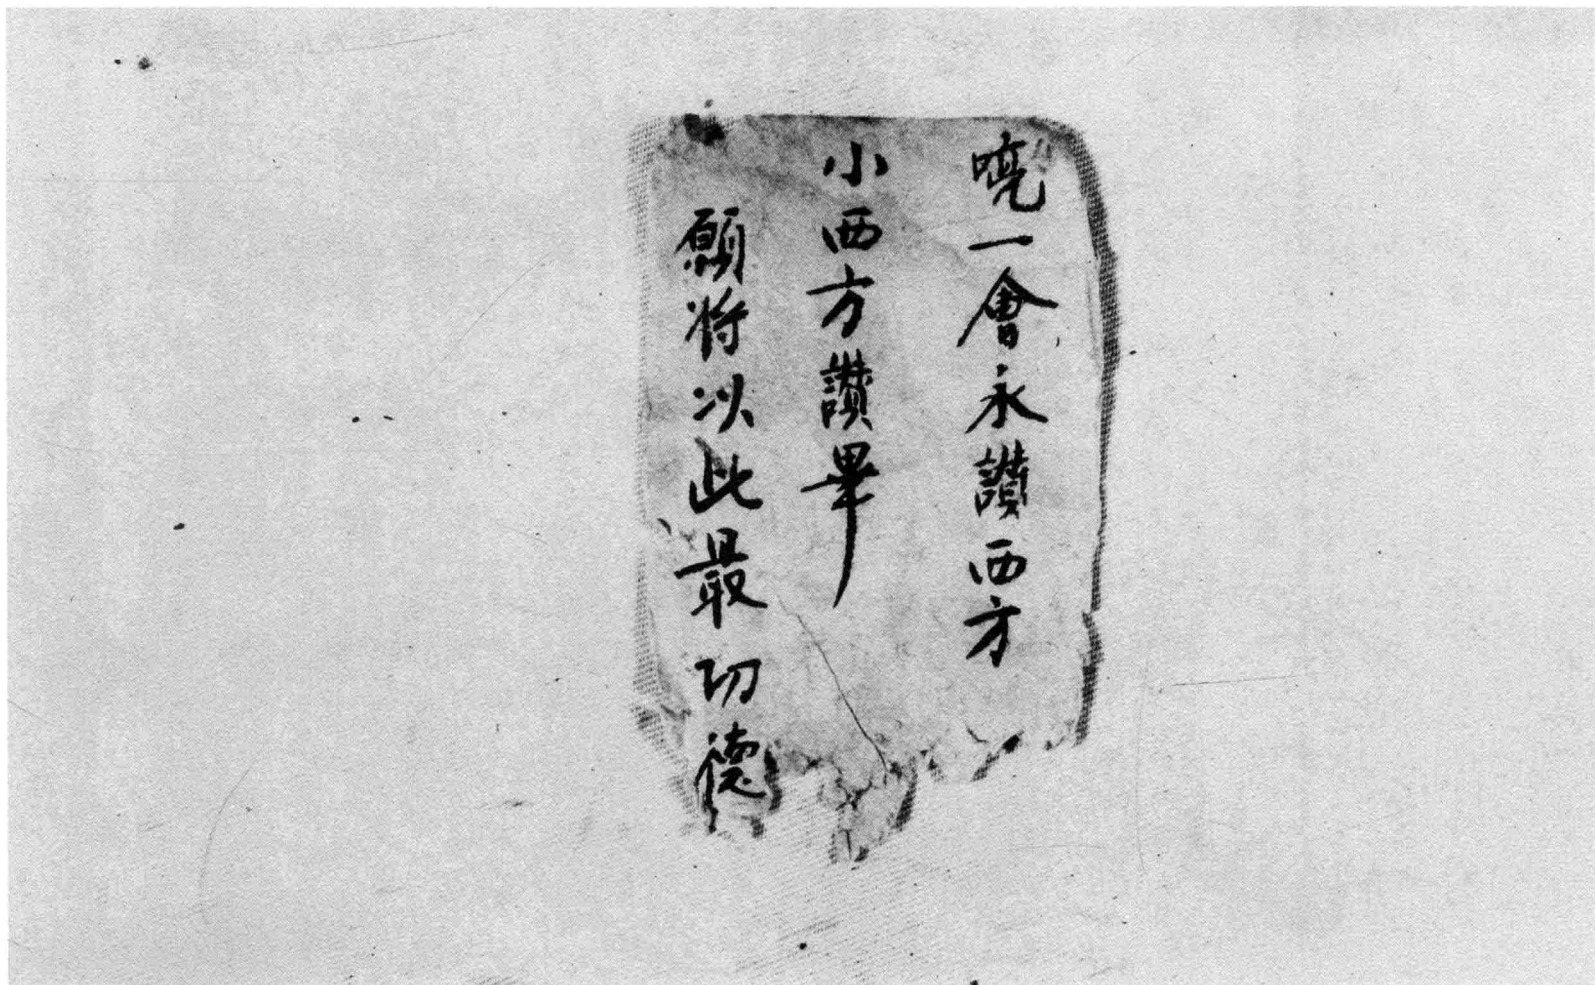 唲一會永讃西方
小西方讃畢
願將以此最功德